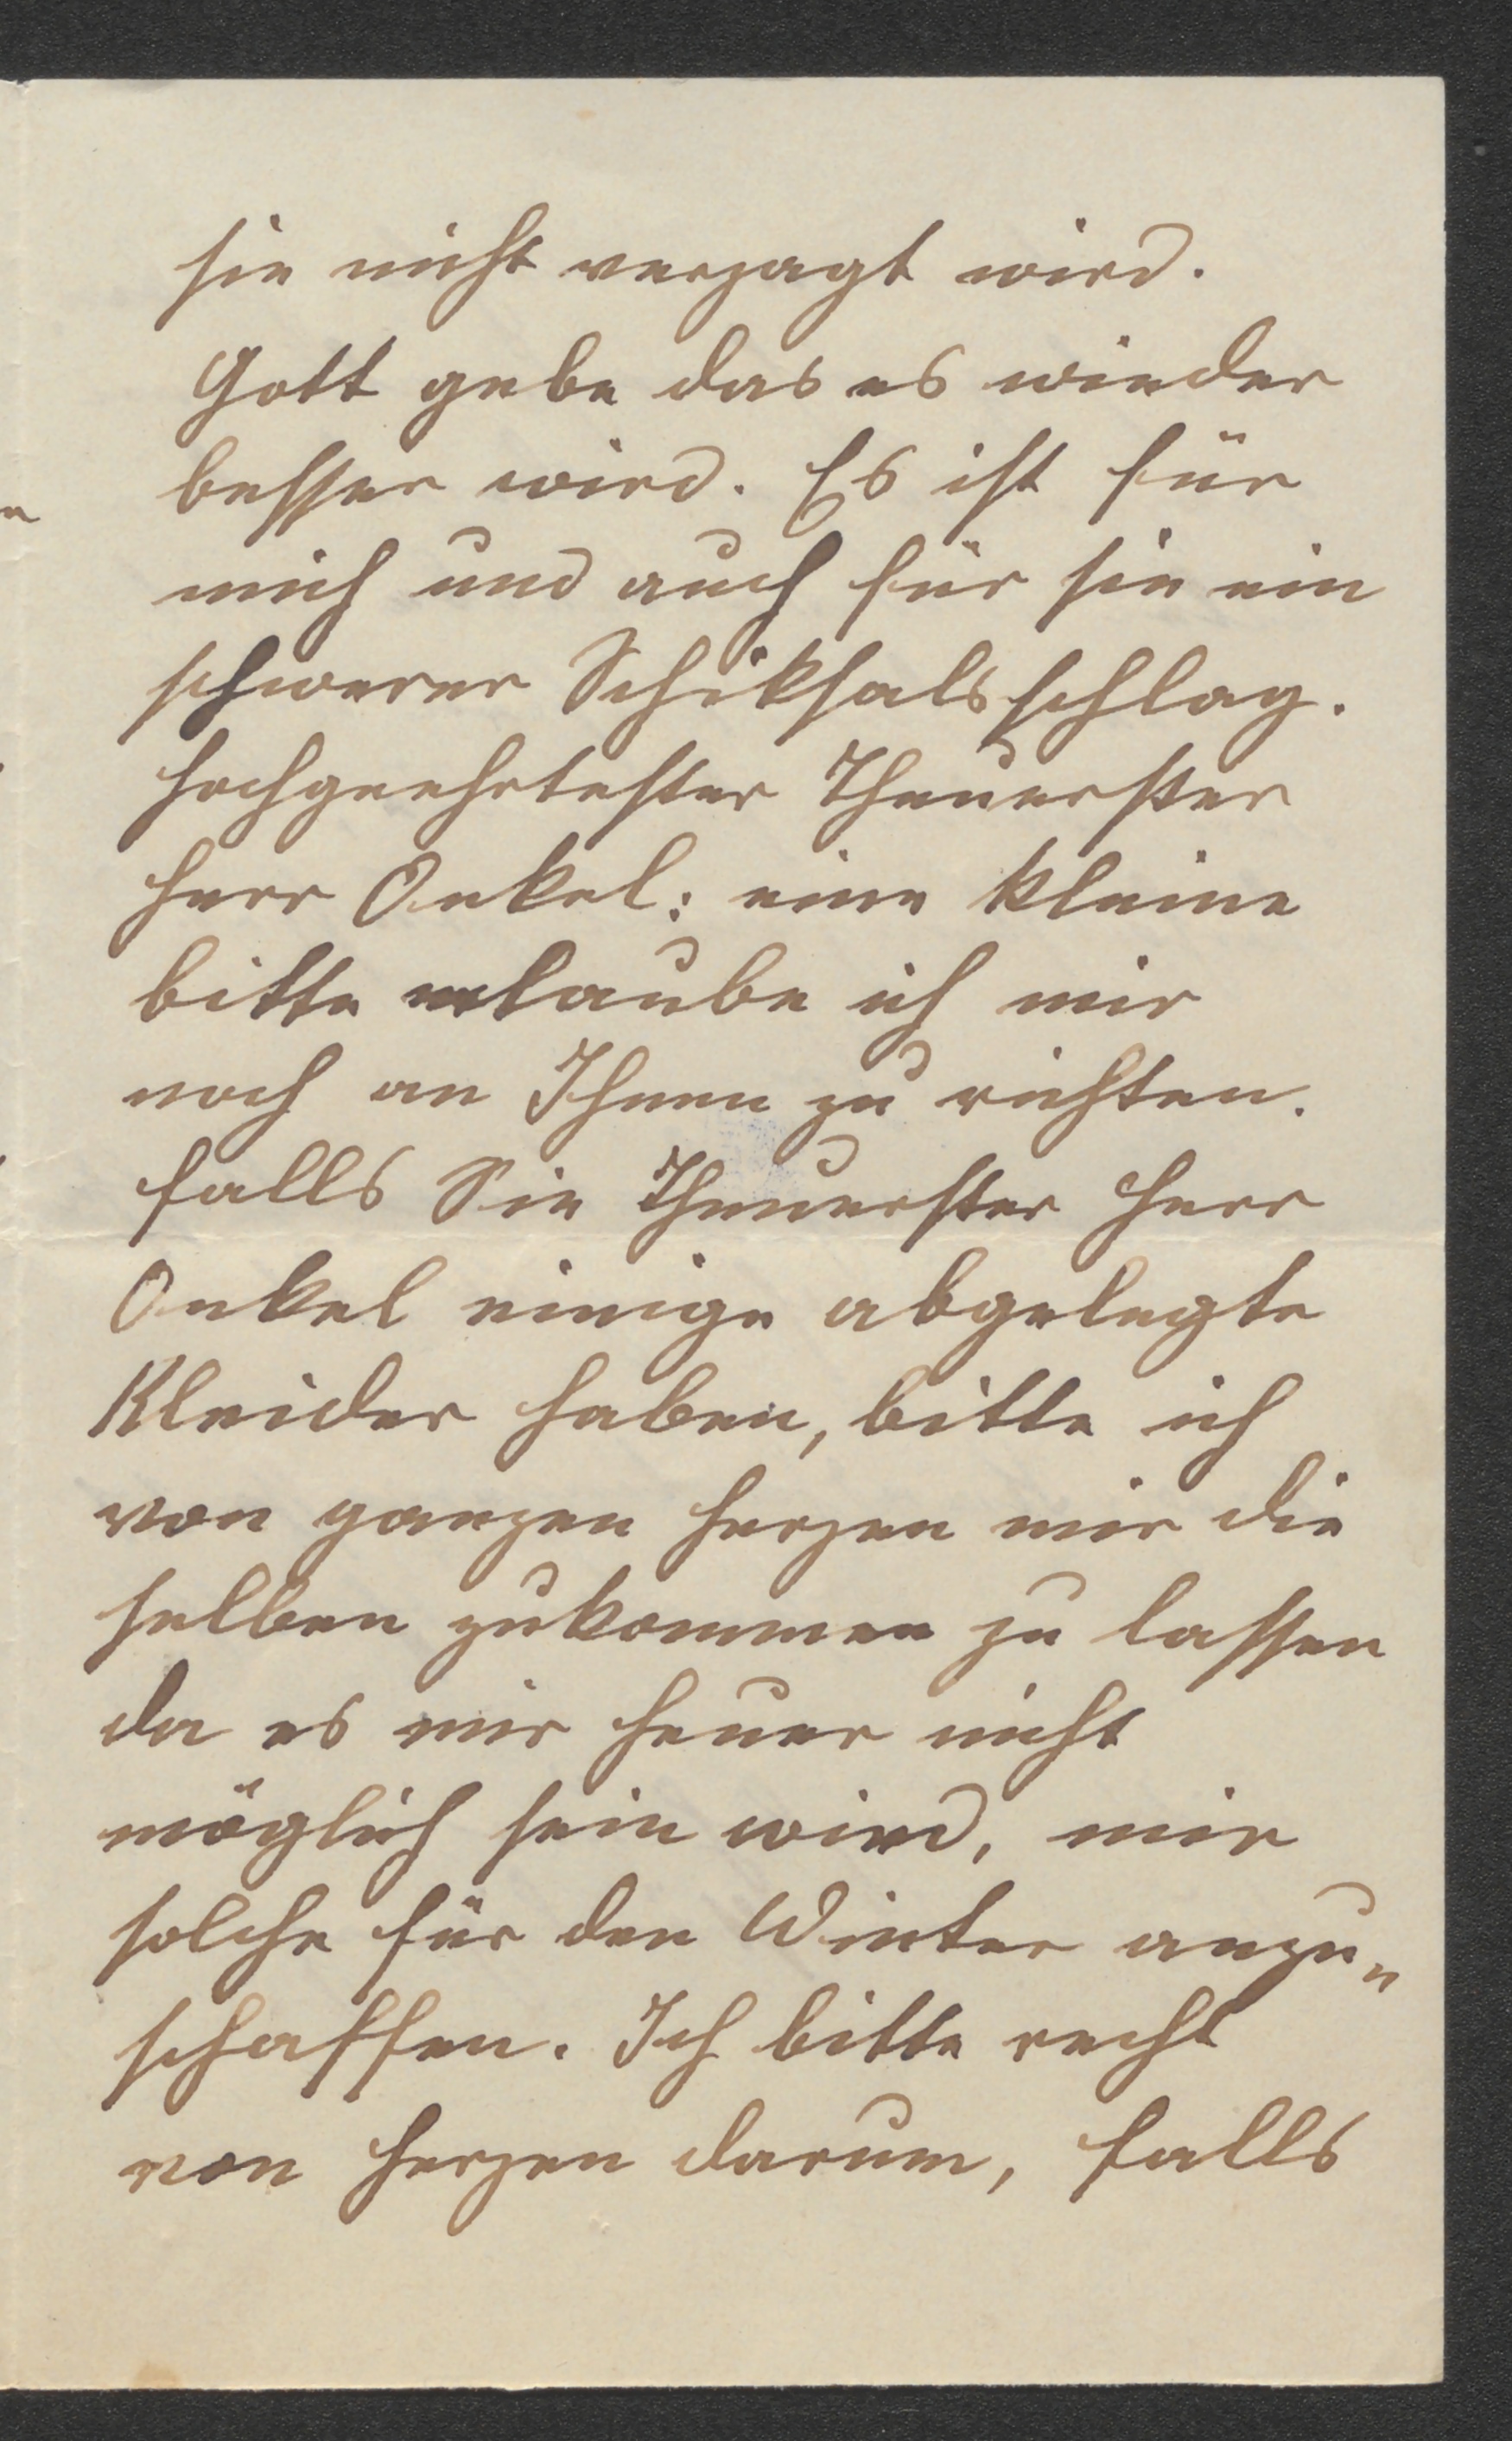 sie nicht verzagt wird.
Gott gebe das es wieder
besser wird. Es ist für
mich und auch für sie ein
schwerer Schiksalsschlag.
Hochgeehrtester Theuerster
Herr Onkel: eine kleine
bitte erlaube ich mir
noch an Ihnen zu richten.
falls Sie Theuerster Herr
Onkel einige abgelegte
Kleider haben, bitte ich
von ganzen Herzen mir die
selben zukommen zu lassen
da es mir heuer nicht
möglich sein wird, mir
solche für den Winter anzu„
schaffen. Ich bitte recht
von Herzen darum, falls